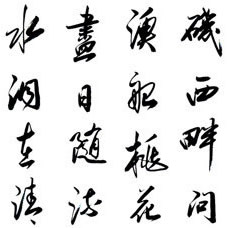 磯西畔問
漁船桃花
盡日隨流
水洞在清